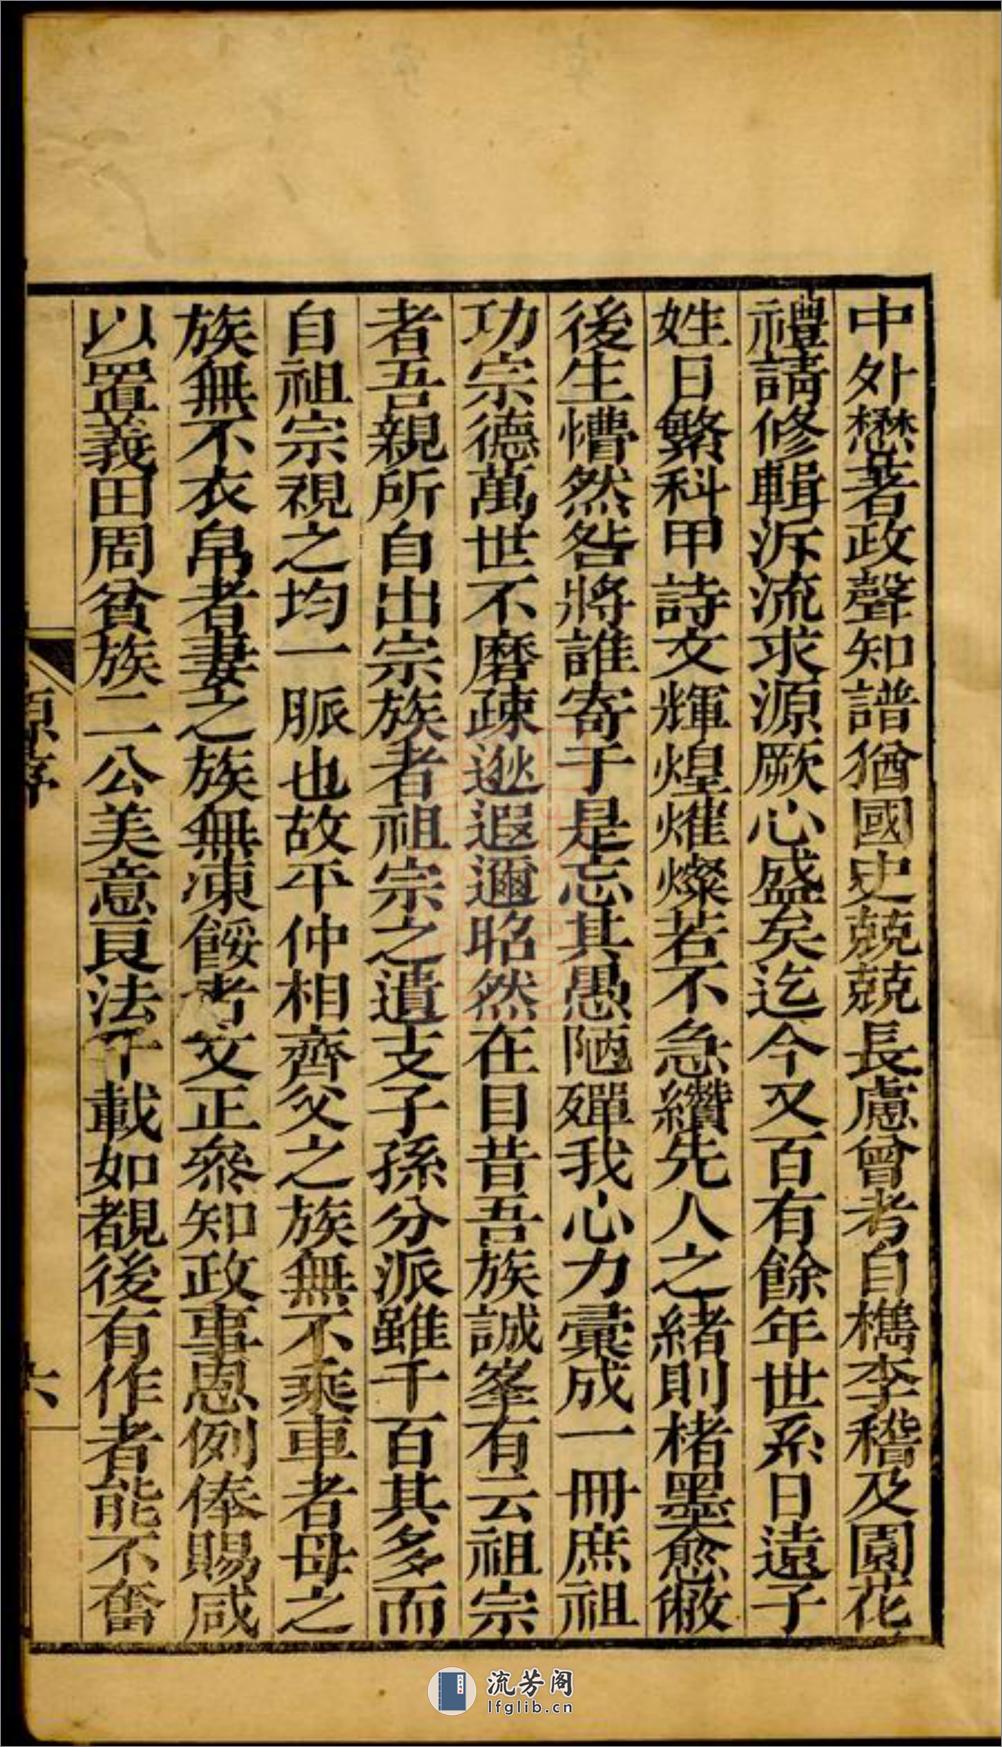 中外懋著政聲知譜猶國史兢兢長慮曾考自檇李稽及園花
禮請修輯泝流求源厥心盛矣迄今又百有餘年世系日遠子
姓日繁科甲詩文輝煌燿燦若不急纘先人之緒則楮墨愈敝
後生懵然咎將誰寄于是忘其愚陋殫我心力彙成一冊庶祖
功宗德萬世不磨疎逖遐邇昭然在目昔吾族誠峯有云祖宗
者吾親所自出宗族者祖宗之遺支子孫分派雖千百其多而
自祖宗視之均一脈也故平仲相齊父之族無不乘車者母之
族無不衣帛者妻之族無凍餒者文正參知政事恩例俸賜咸
以置義田周貧族二公美意良法千載如覩後有作者能不奮
原序
六
流芳阁
lfglib.cn